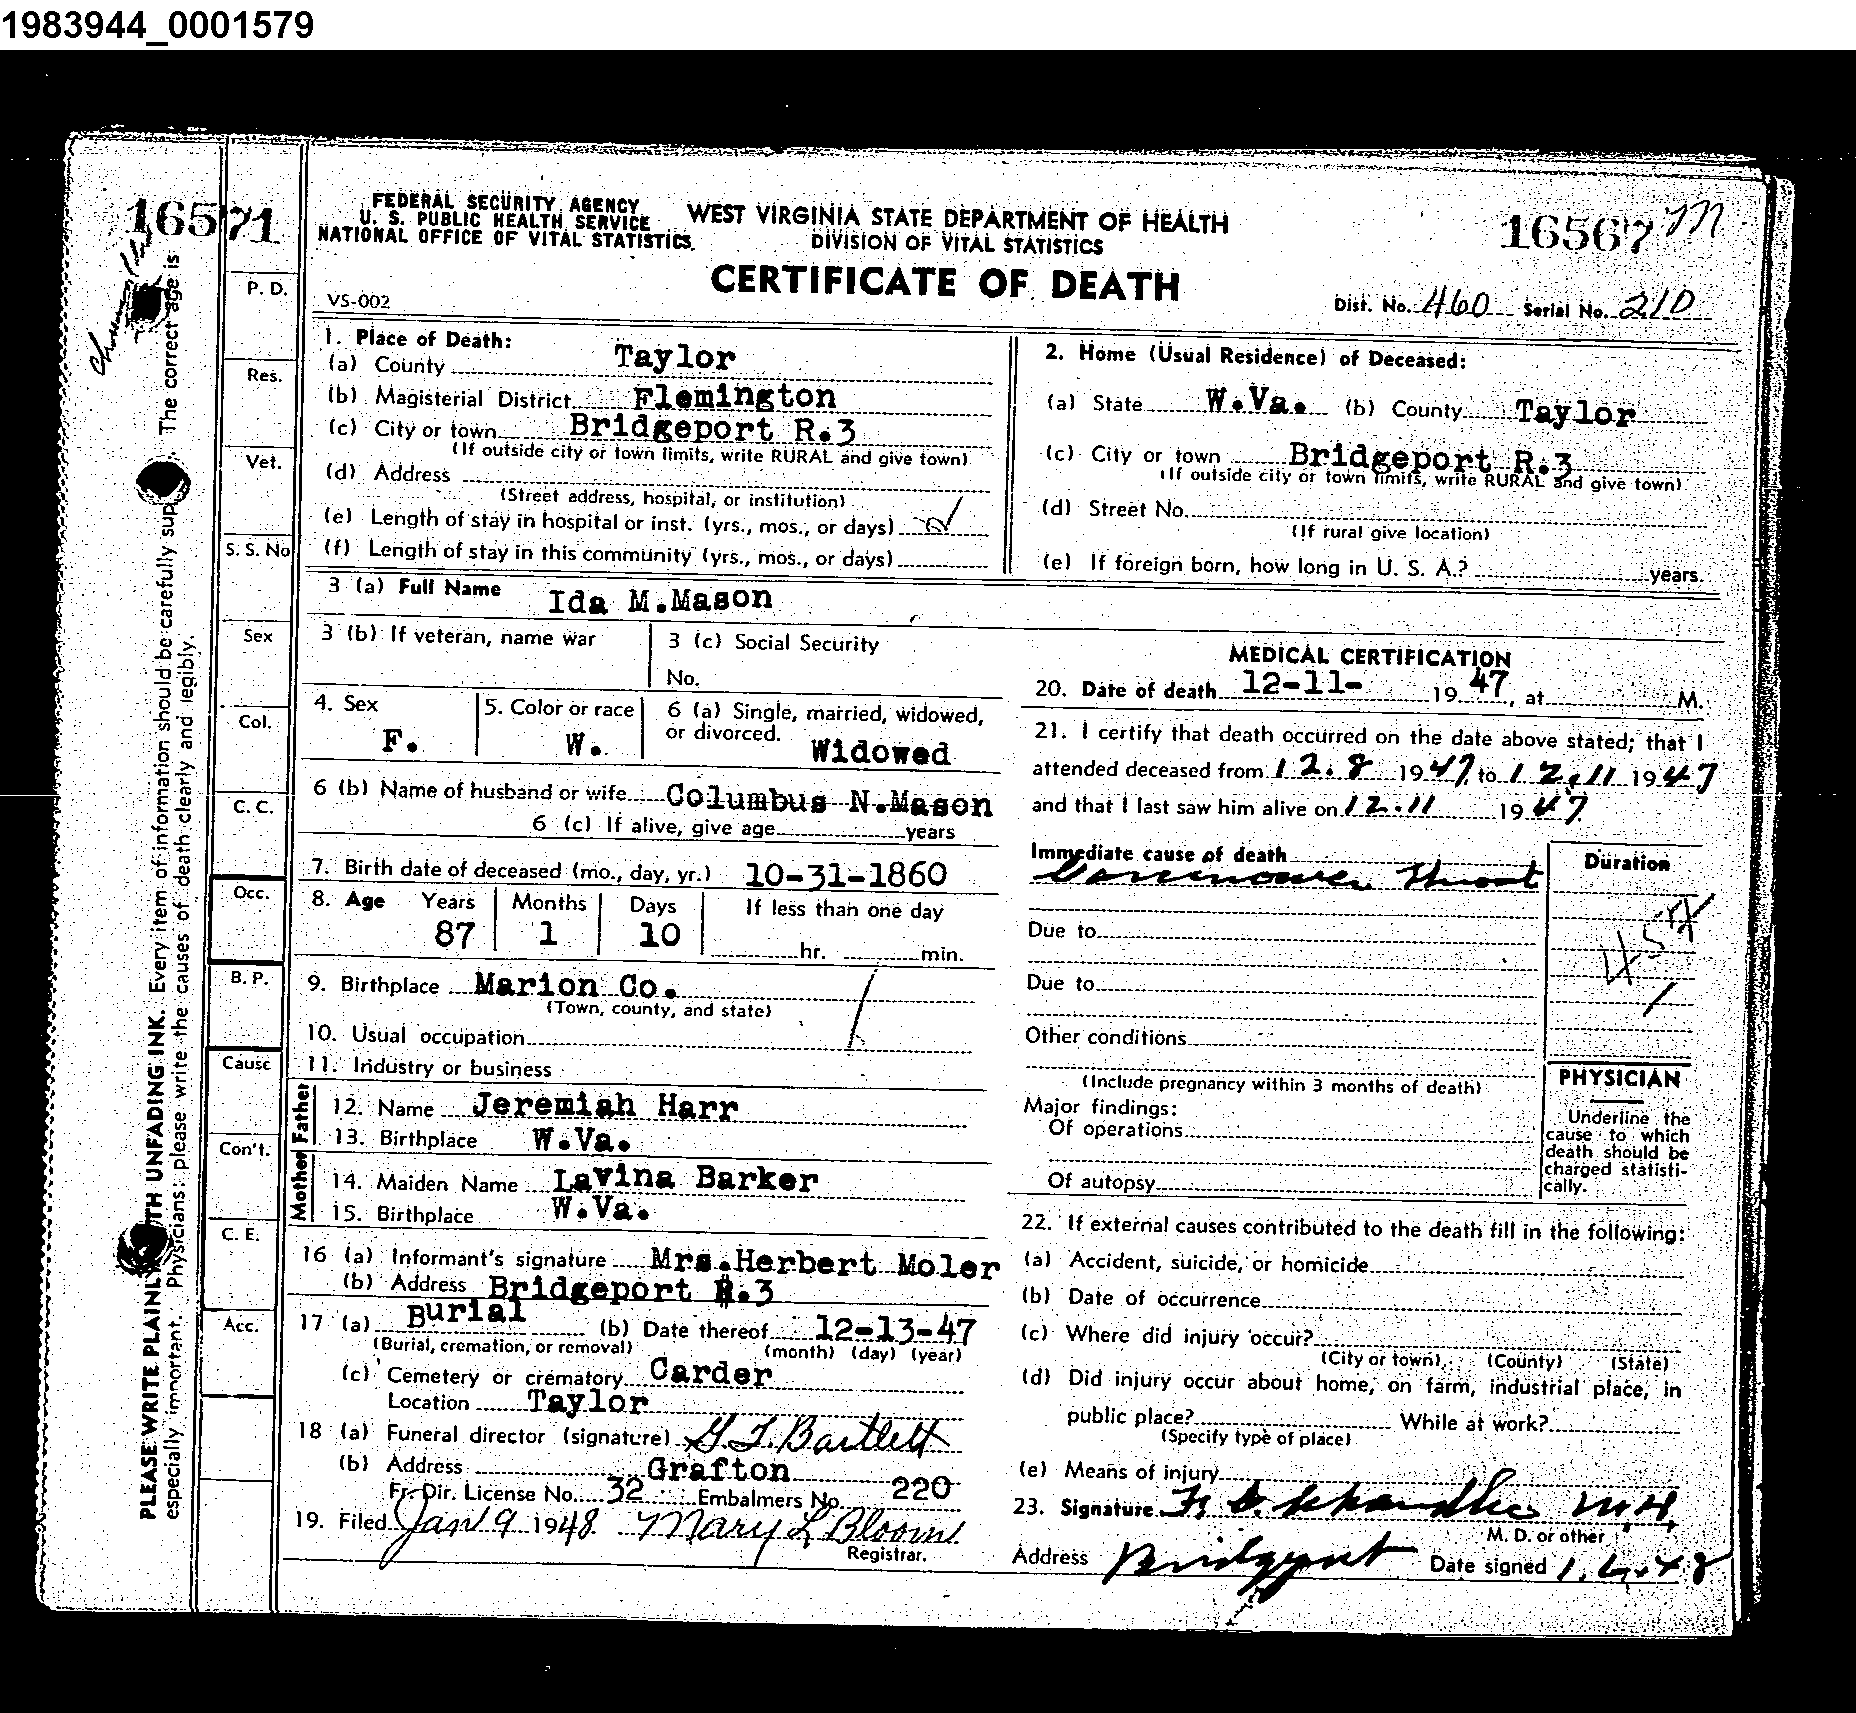 1983944_0001579
16571
FEDERAL SECURITY AGENCY
U. S. PUBLIC HEALTH SERVICE
NATIONAL OFFICE OF VITAL STATISTICS
WEST VIRGINIA STATE DEPARTMENT OF HEALTH
DIVISION OF VITAL STATISTICS
16567 M
CERTIFICATE OF DEATH
VS-002
Dist. No. 460 Serial No. 210
1. Place of Death:
(a) County Taylor
(b) Magisterial District Flemington
(c) City or town Bridgeport R.3
(If outside city or town limits, write RURAL and give town)
(d) Address
(Street address, hospital, or institution)
(e) Length of stay in hospital or inst. (yrs., mos., or days)
(f) Length of stay in this community (yrs., mos., or days)
2. Home (Usual Residence) of Deceased:
(a) State W.Va. (b) County Taylor
(c) City or town Bridgeport R.3
(If outside city or town limits, write RURAL and give town)
(d) Street No.
(If rural give location)
(e) If foreign born, how long in U. S. A.? years.
3 (a) Full Name Ida M.Mason
3 (b) If veteran, name war
3 (c) Social Security
No.
4. Sex
F.
5. Color or race
W.
6 (a) Single, married, widowed,
or divorced. Widowed
6 (b) Name of husband or wife Columbus N.Mason
6 (c) If alive, give age years
7. Birth date of deceased (mo., day, yr.) 10-31-1860
8. Age Years Months Days If less than one day
87 1 10 hr. min.
9. Birthplace Marion Co.
(Town, county, and state)
10. Usual occupation
11. Industry or business
Father
12. Name Jeremiah Harr
13. Birthplace W.Va.
Mother
14. Maiden Name Lavina Barker
15. Birthplace W.Va.
16 (a) Informant's signature Mrs.Herbert Moler
(b) Address Bridgeport R.3
17 (a) Burial (b) Date thereof 12-13-47
(Burial, cremation, or removal) (month) (day) (year)
(c) Cemetery or crematory Carder
Location Taylor
18 (a) Funeral director (signature) G.F. Bartlett
(b) Address Grafton
Fr. Dir. License No. 32 Embalmers No. 220
19. Filed Jan 9 1948 Mary L Bloom
Registrar.
MEDICAL CERTIFICATION
20. Date of death 12-11- 19 47, at M.
21. I certify that death occurred on the date above stated; that I
attended deceased from 12.8 1947, to 12.11 1947
and that I last saw him alive on 12.11 1947
Immediate cause of death
Throat
Duration
Due to
Due to
Other conditions
(Include pregnancy within 3 months of death)
Major findings:
Of operations
Of autopsy
PHYSICIAN
Underline the
cause to which
death should be
charged statisti-
cally.
22. If external causes contributed to the death fill in the following:
(a) Accident, suicide, or homicide
(b) Date of occurrence
(c) Where did injury occur?
(City or town) (County) (State)
(d) Did injury occur about home, on farm, industrial place, in
public place? While at work?
(Specify type of place)
(e) Means of injury
23. Signature
M. D. or other
Address Bridgeport Date signed
P. D.
Res.
Vet.
S. S. No
Sex
Col.
C. C.
Occ.
B. P.
Cause
Con't.
C. E.
Acc.
PLEASE WRITE PLAINLY WITH UNFADING INK. Every item of information should be carefully sup The correct age is
especially important. Physicians: please write the causes of death clearly and legibly.